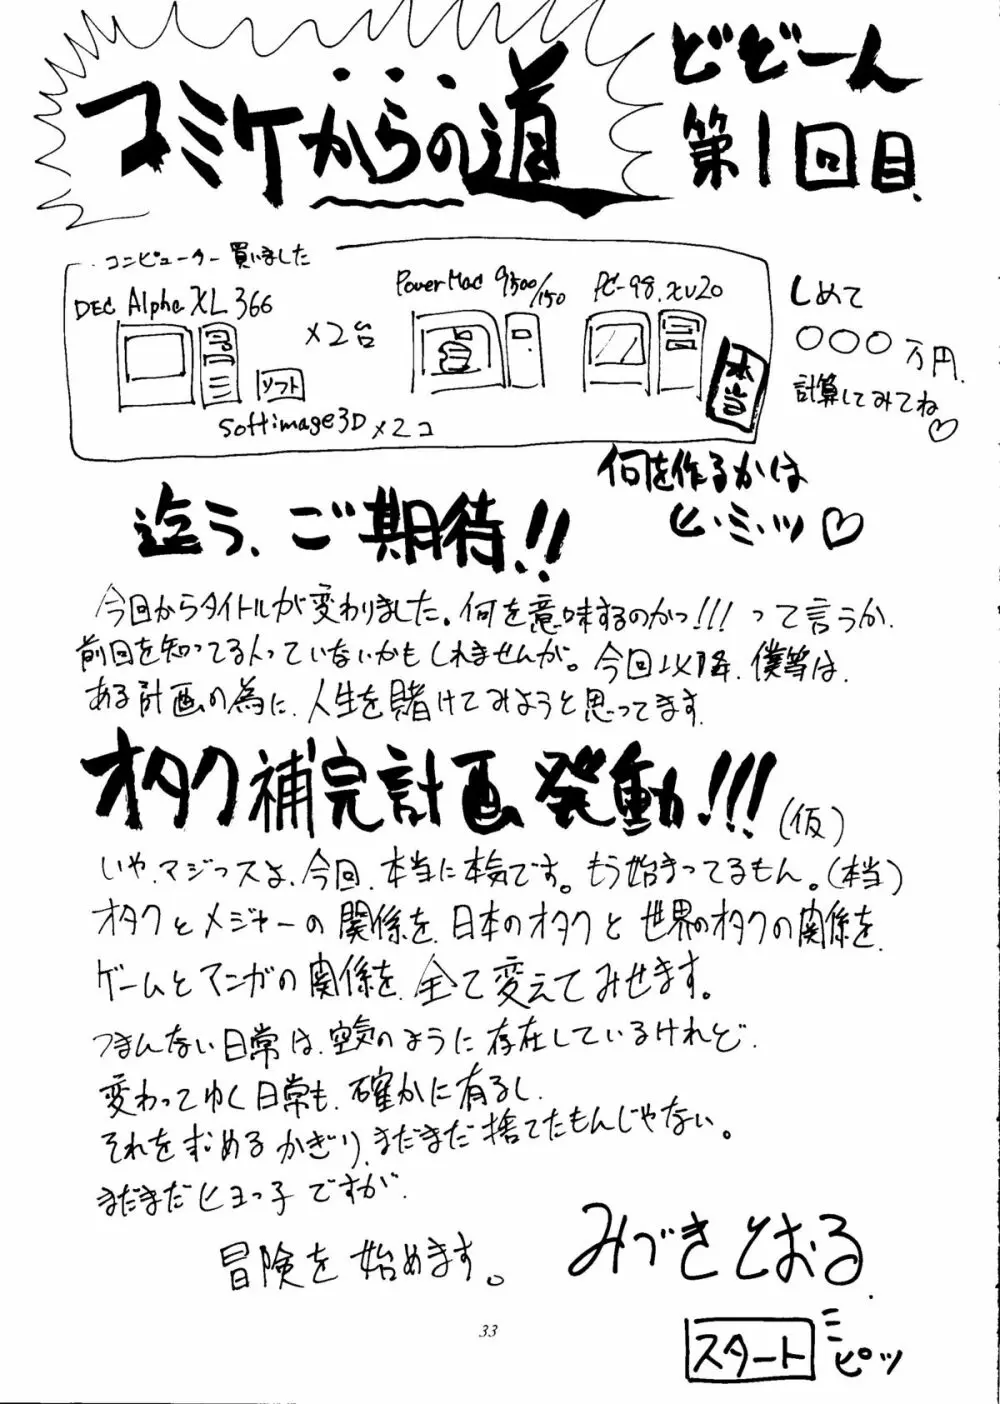 コミケからの道
どどーん
第1回目.
コンピューター買いました
DEC Alpha XL 366
×2台
ソフト
Softimage3D ×2コ
PowerMac 9500/150
PC-98.XV20
本当
しめて
○○○万円.
計算してみてね♡
何を作るかは
ヒ・ミ・ツ♡
迄う、ご期待!!
今回からタイトルが変わりました。何を意味するのかっ!!! って言うか.
前回を知ってる人っていないかもしれませんが。今回以降、僕等は、
ある計画の為に、人生を賭けてみようと思ってます.
オタク補完計画発動!!!(仮)
いや、マジっスよ、今回、本当に本気です。もう始まってるもん。(本当)
オタクとメジャーの関係を、日本のオタクと世界のオタクの関係を、
ゲームとマンガの関係を、全て変えてみせます。
つまんない日常は、空気のように存在しているけれど、
変わってゆく日常も、確かに有るし、
それを求めるかぎり、まだまだ捨てたもんじゃない。
まだまだヒヨっ子ですが、
冒険を始めます。
みづきとおる.
スタート
ピッ
33